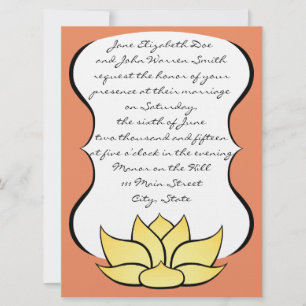 Jane Elizabeth Doe
and John Warren Smith
request the honor of your
presence at their marriage
on Saturday,
the sixth of June
two thousand and fifteen
at five o'clock in the evening
Manor on the Hill
111 Main Street
City, State